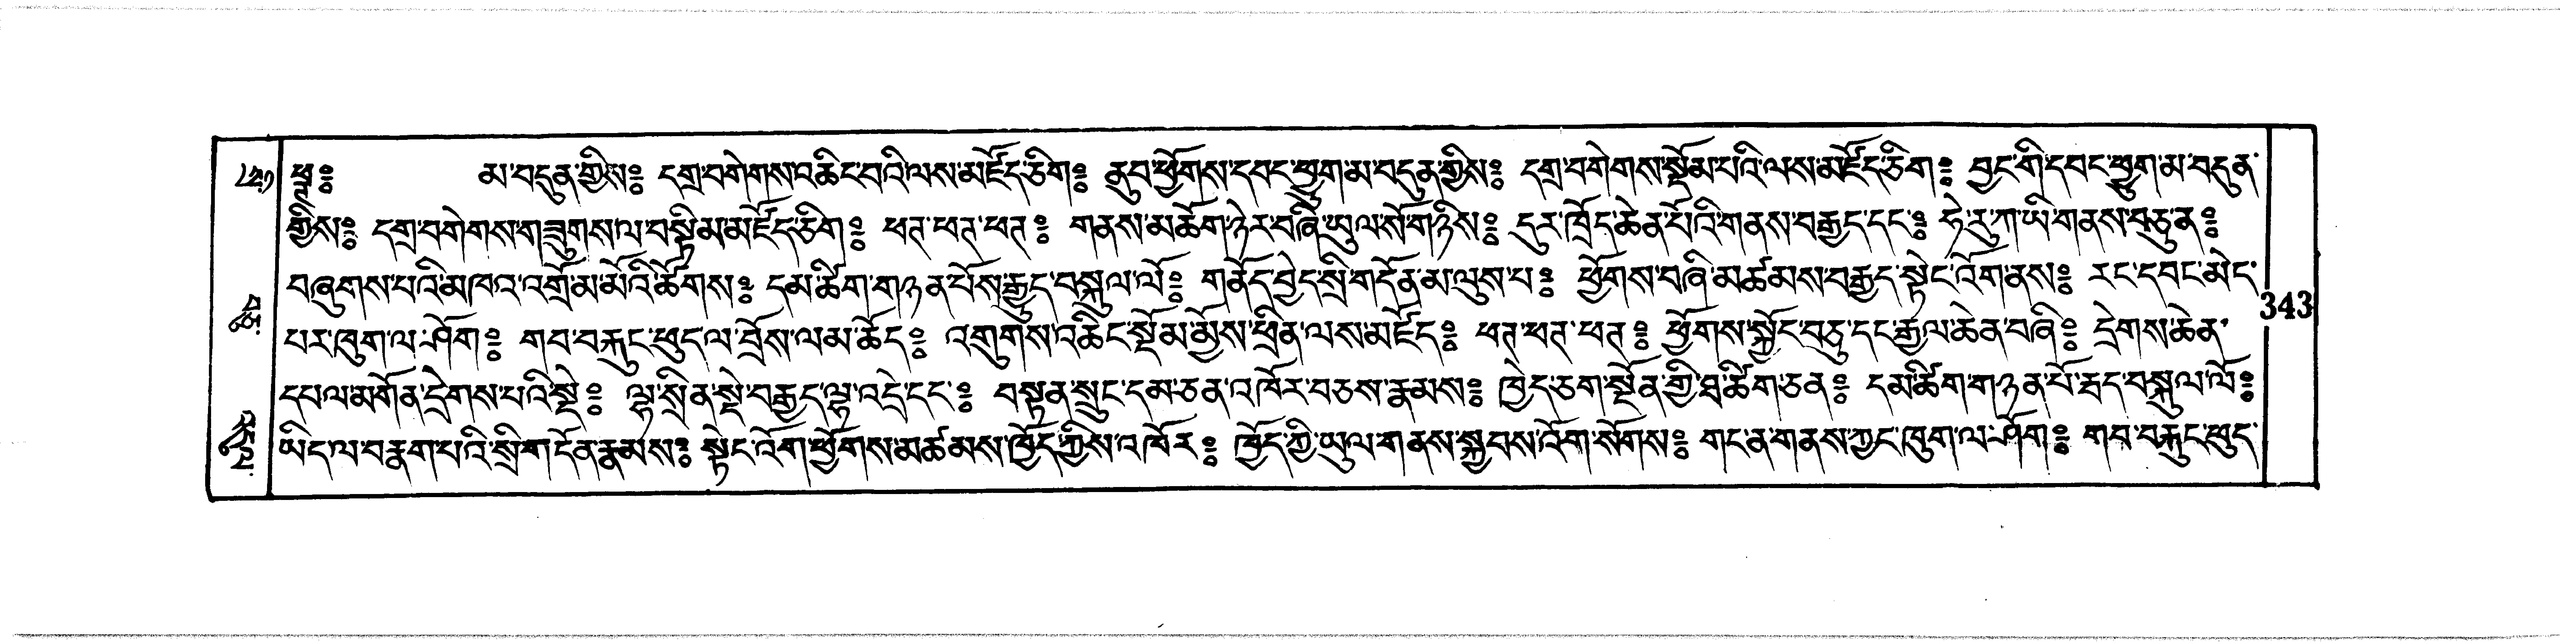 ཕྱ༔ མ་བདུན་གྱིས༔ དགྲ་བགེགས་བཆིང་བའི་ལས་མཛོད་ཅིག༔ ནུབ་ཕྱོགས་དབང་ཕྱུག་མ་བདུན་གྱིས༔ དགྲ་བགེགས་སྡོམ་པའི་ལས་མཛོད་ཅིག༔ བྱང་གི་དབང་ཕྱུག་མ་བདུན་
གྱིས༔ དགྲ་བགེགས་གཟུགས་ལ་བསྟིམ་མཛོད་ཅིག༔ ཕཊ་ཕཊ་ཕཊ༔ གནས་མཆོག་ཉེར་བཞི་ཡུལ་སོ་གཉིས༔ དུར་ཁྲོད་ཆེན་པོའི་གནས་བརྒྱད་དང༔ ཧེ་རུ་ཀ་ཡི་གནས་བཅུ་ན༔
བཞུགས་པའི་མཁའ་འགྲོ་མ་མོའི་ཚོགས༔ དམ་ཚིག་གཉན་པོས་རྒྱུད་བསྐུལ་ལོ༔ གནོད་བྱེད་སྲི་གདོན་མ་ལུས་པ༔ ཕྱོགས་བཞི་མཚམས་བརྒྱད་སྟེང་འོག་ནས༔ རང་དབང་མེད་
པར་ཁུག་ལ་ཤོག༔ གབ་བརྐུང་ཕུད་ལ་བྲོས་ལ་མ་ཆོད༔ འགུགས་འཆིང་སྡོམ་མྱོས་ཕྲིན་ལས་མཛོད༔ ཕཊ་ཕཊ་ཕཊ༔ ཕྱོགས་སྐྱོང་བཅུ་དང་རྒྱལ་ཆེན་བཞི༔ དྲེགས་ཆེན་
དཔལ་མགོན་དྲེགས་པའི་སྡེ༔ ལྷ་སྲིན་སྡེ་བརྒྱད་ལྷ་འདྲེ་དང༔ བསྟན་སྲུང་དམ་ཅན་འཁོར་བཅས་རྣམས༔ ཁྱེད་ཅག་སྔོན་གྱི་ཐ་ཚིག་ཅན༔ དམ་ཚིག་གཉན་པོ་རྒད་བསྐུལ་ལོ༔
ཡིད་ལ་བརྣག་པའི་སྲི་གདོན་རྣམས༔ སྟེང་འོག་ཕྱོགས་མཚམས་ཁྱོད་ཀྱིས་འཁོར༔ ཁྱོད་ཀྱི་ཡུལ་གནས་སྐྱབས་འོག་སོགས༔ གང་ན་གནས་ཀྱང་ཁུག་ལ་ཤོག༔ གབ་བརྐུང་ཕུད་
343